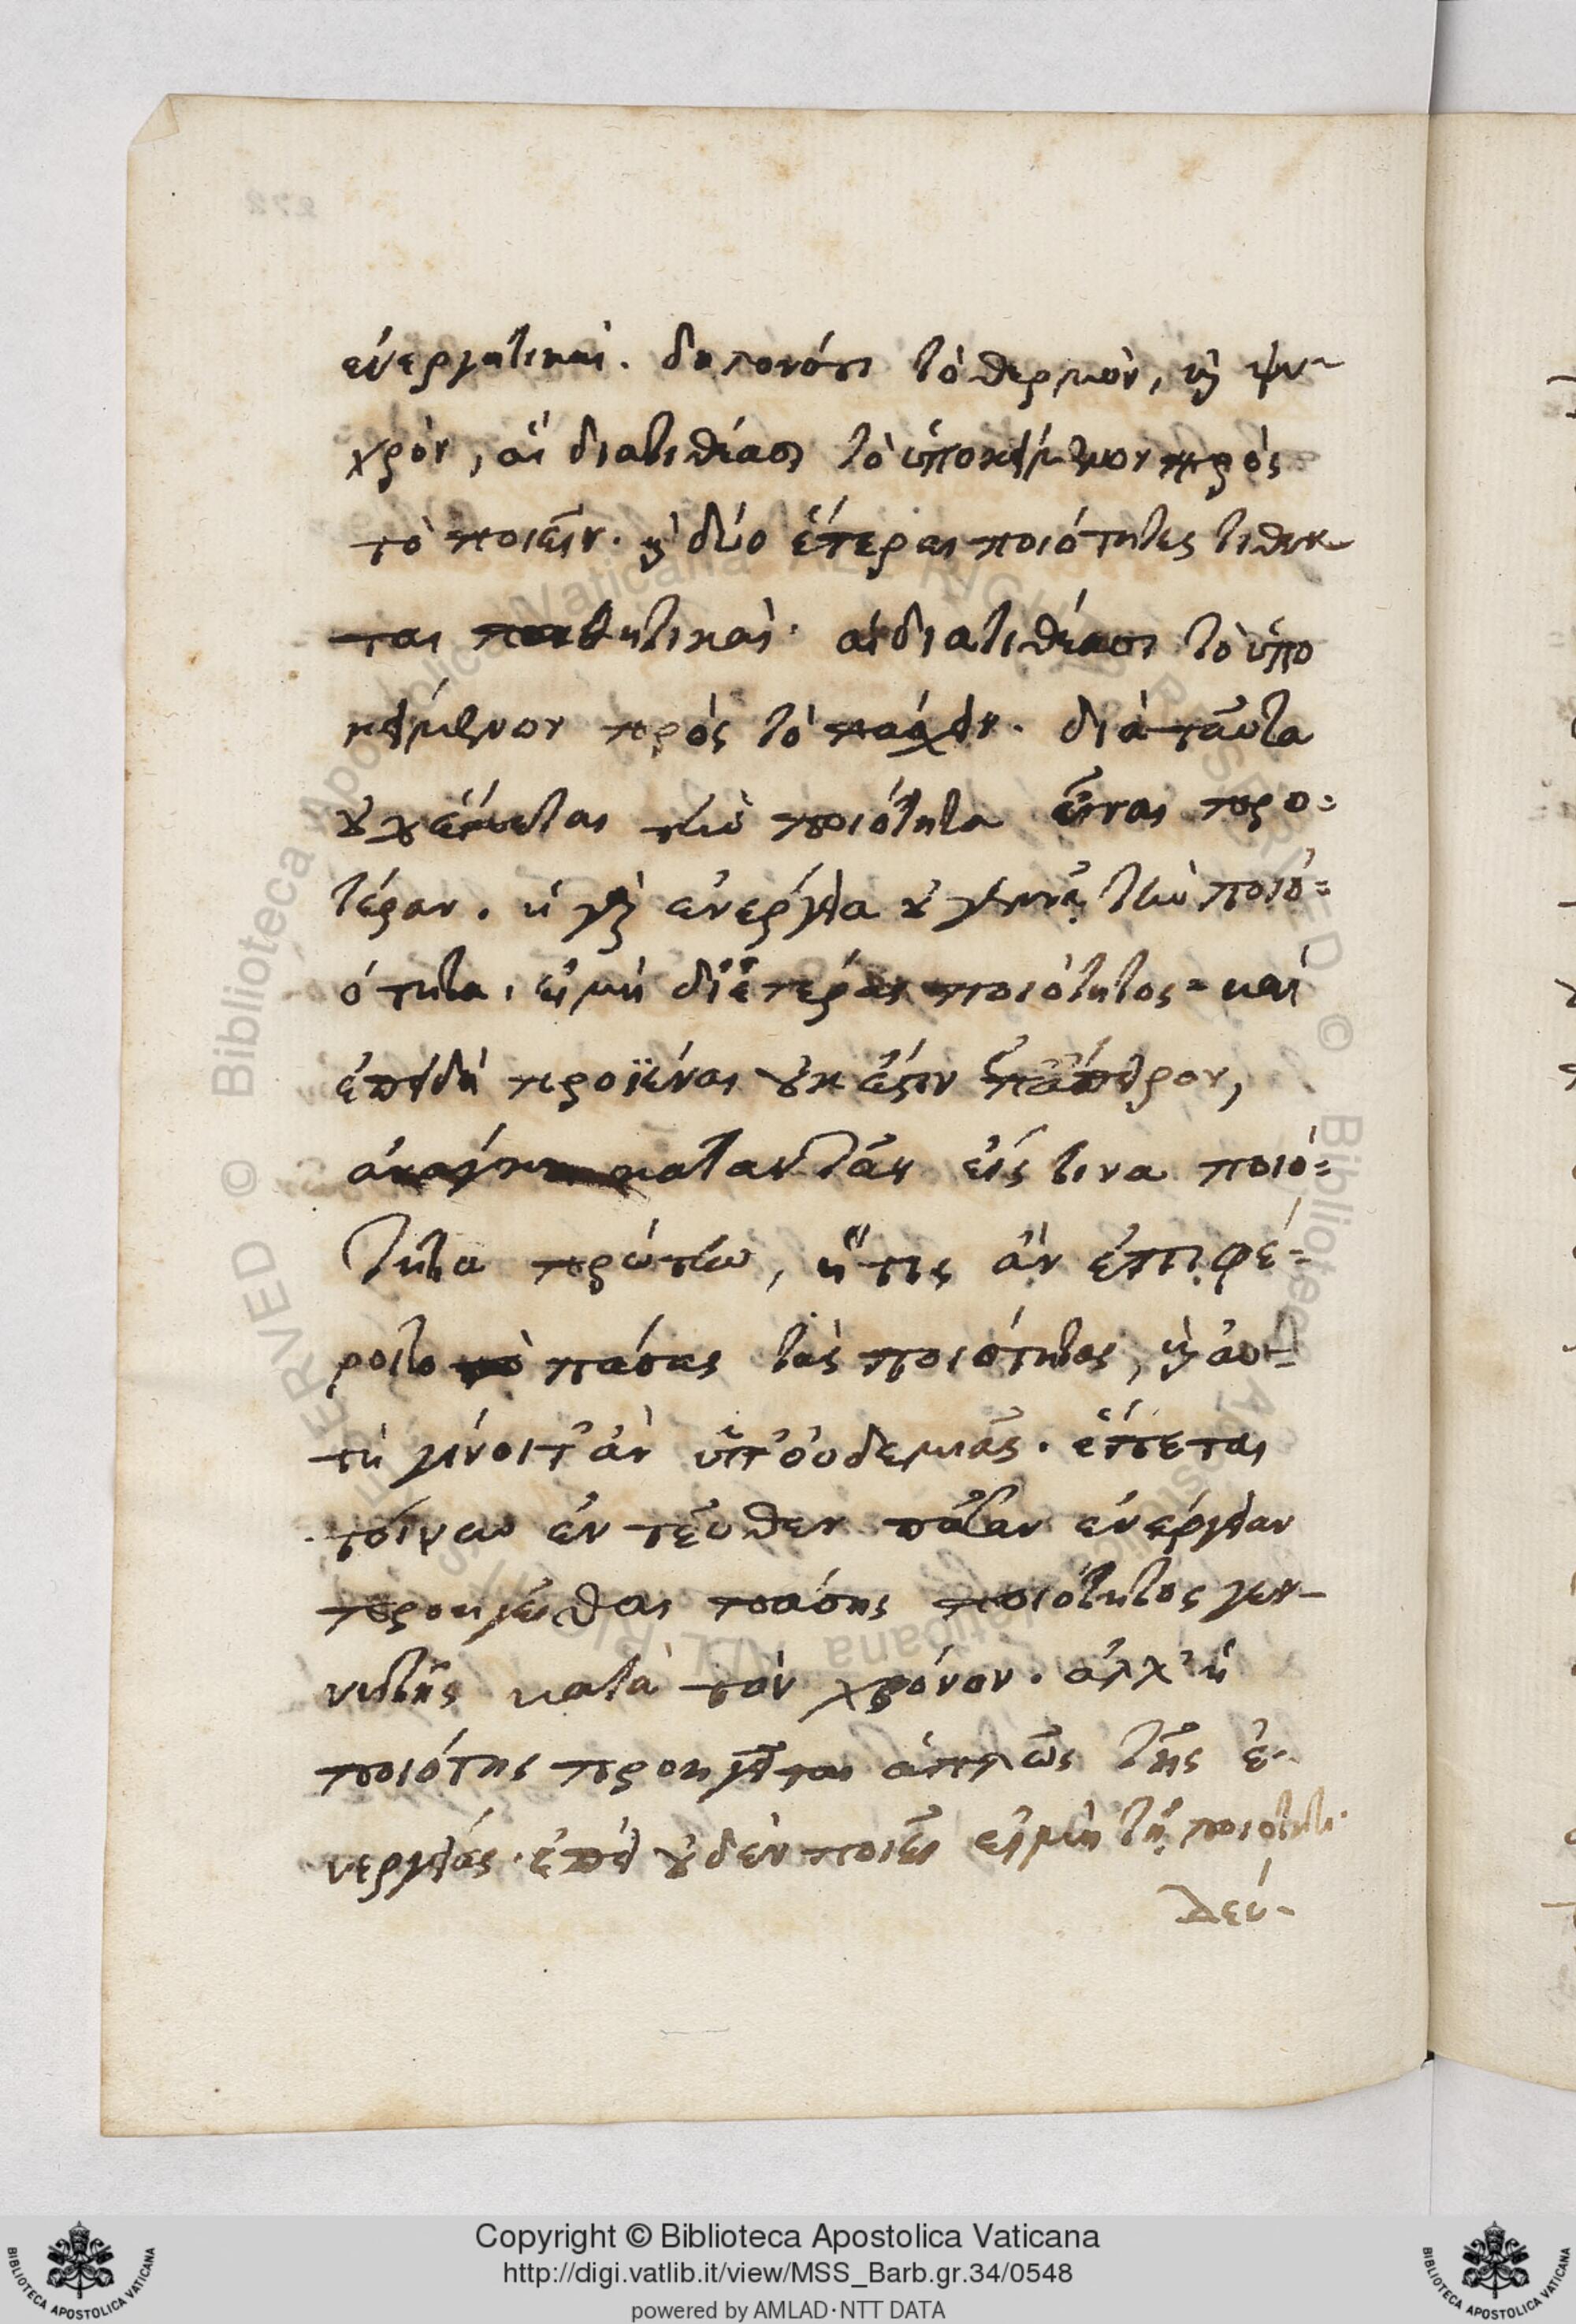 ἐνεργητικαὶ. δηλονότι τὸ θερμὸν, καὶ ψυ-
χρὸν, αἳ διατιθέασι τὸ ὑποκείμενον πρὸς
τὸ ποιεῖν. καὶ δύο ἕτεραι ποιότητες τίθεν
ται παθητικαὶ. αἳ διατιθέασι τὸ ὑπο
κείμενον πρὸς τὸ πάσχειν. διὰ ταῦτα
οὐ τὴν ποιότητα εἶναι προ=
τέραν. ἡ γὰρ ἐνέργεια οὐ γεννᾷ τὴν ποιό=
ότητα, εἰμὴ δι' ἑτέρας ποιότητος= καὶ
ἐπειδὴ προϊέναι οὐκ ἔστιν ἐπ' ἄπειρον,
ἀνάγκη καταντᾶν εἴς τινα ποιό=
τητα πρώτην, ἥτις ἂν ἐπιφέ=
ροιτο πάσας τὰς ποιότητας, καὶ αὐ=
τὴ γίνοιτ' ἂν ὑπ' οὐδεμιᾶς. ἕπεται
τοίνυν ἐντεῦθεν πᾶσαν ἐνέργειαν
προηγεῖσθαι πάσης ποιότητος γεν-
νητῆς κατὰ τὸν χρόνον. ἀλλ' ἡ
ποιότης προηγεῖται ἁπλῶς τῆς ἐ-
νεργείας. ἐπεὶ οὐδὲν ποιεῖ εἰμὴ τῇ ποιότητι.
Δευ-
Copyright © Biblioteca Apostolica Vaticana
http://digi.vatlib.it/view/MSS_Barb.gr.34/0548
powered by AMLAD·NTT DATA
BIBLIOTECA APOSTOLICA VATICANA
BIBLIOTECA APOSTOLICA VATICANA